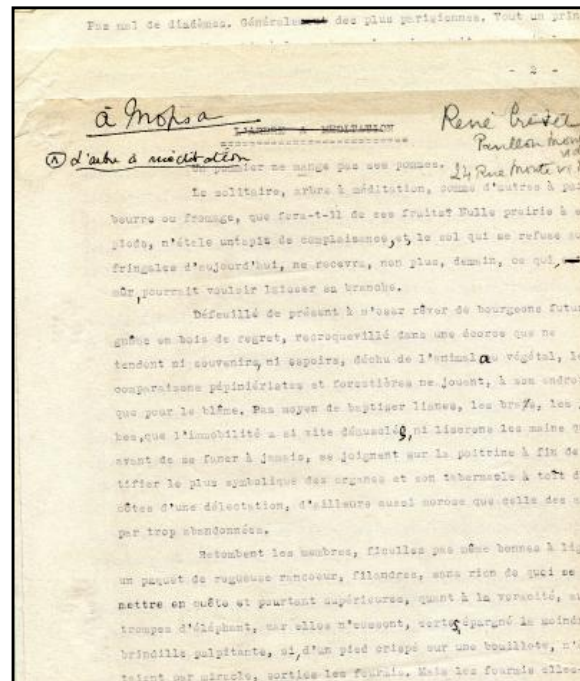 Pas mal de diadèmes. Généralement des plus parisiennes. Vout un prin
- 2 -
à Mopsa
L'ARBRE A MEDITATION
René Crevel
Pavillon Mon
24 Rue Monte vi
① L'arbre à méditation
Un pommier ne mange pas ses pommes.
Le solitaire, arbre à méditation, comme d'autres à pa
beurre ou fromage, que fera-t-il de ses fruits? Nulle prairie à
pieds, n'étale un tapis de complaisance, et, le sol qui se refuse au
fringales d'aujourd'hui, ne recevra, non plus, demain, ce qui,
mûr, pourrait vouloir laisser sa branche.
Défeuillé de présent à n'oser rêver de bourgeons futu
guêne en bois de regret, recroquevillé dans une écorce que ne
tendent ni souvenirs, ni espoirs, déchu de l'animal au végétal, le
comparaisons pépiniéristes et forestières ne jouent, à son endro
que pour le blâme. Pas moyen de baptiser lianes, les bras, les
bes, que l'immobilité a si vite démusclés, ni liserons les mains q
avant de se faner à jamais, se joignent sur la poitrine à fin de
tifier le plus symbolique des organes et son tabernacle à toit d
côtes d'une délectation, d'ailleurs aussi morose que celle des
par trop abandonnées.
Retombent les membres, ficelles pas même bonnes à lig
un paquet de rugueuse rancoeur, filandres, sans rien de quoi se
mettre en quête et pourtant supérieures, quant à la voracité, au
trompes d'éléphant, car elles n'eussent, certes, épargné la moind
brindille palpitante, si, d'un pied crispé sur une bouillote, n'é
taient par miracle, sorties les fourmis. Mais les fourmis elles